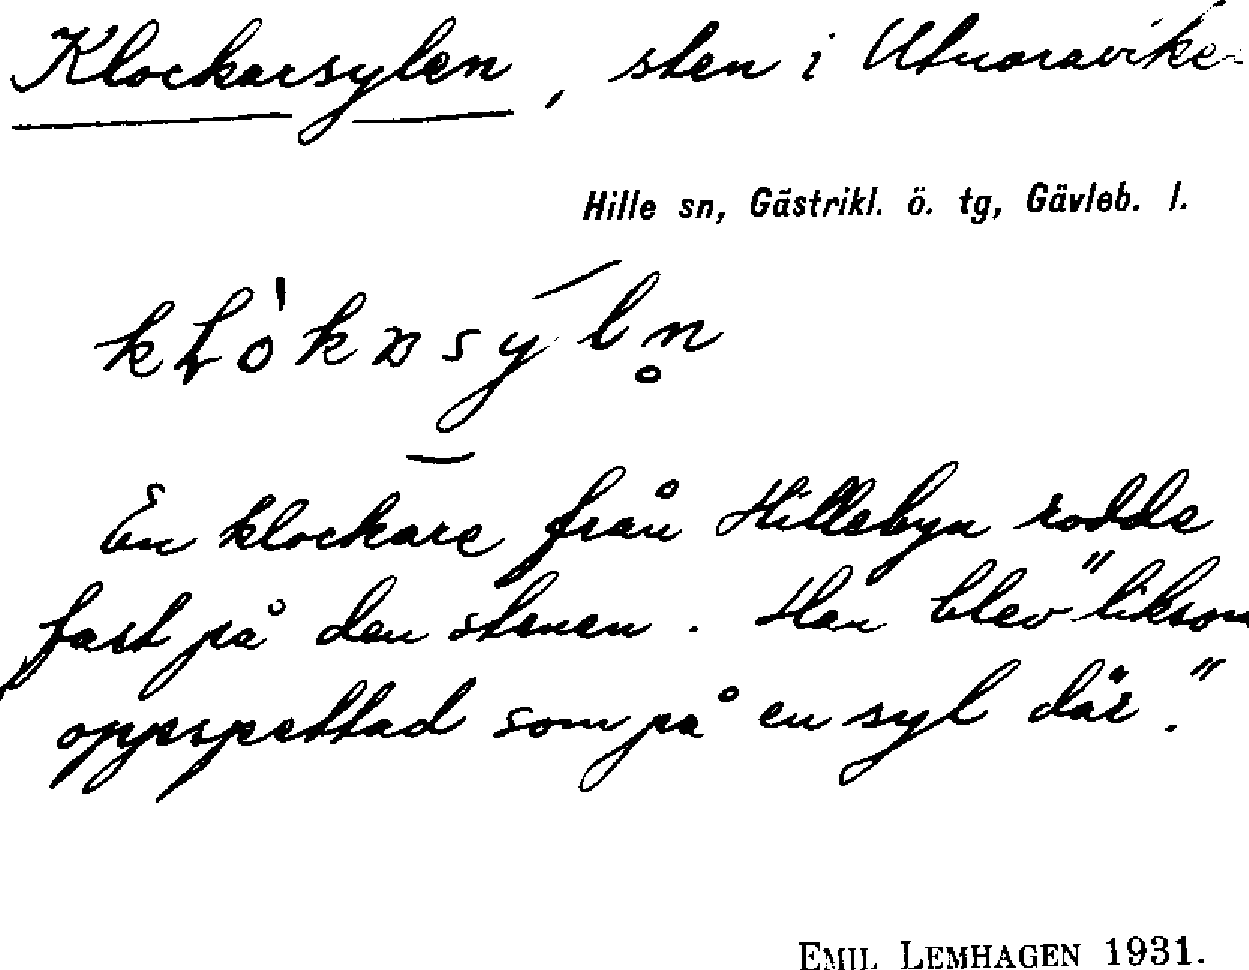 Klockarsylen, sten i Utnoravike
Hille sn, Gästrikl. ö. tg, Gävleb. l.
En klockare från Hillebyn rodde
fast på den stenen. Han blev "liksom
oppespettad som på en syl där."
EMIL LEMHAGEN 1931.